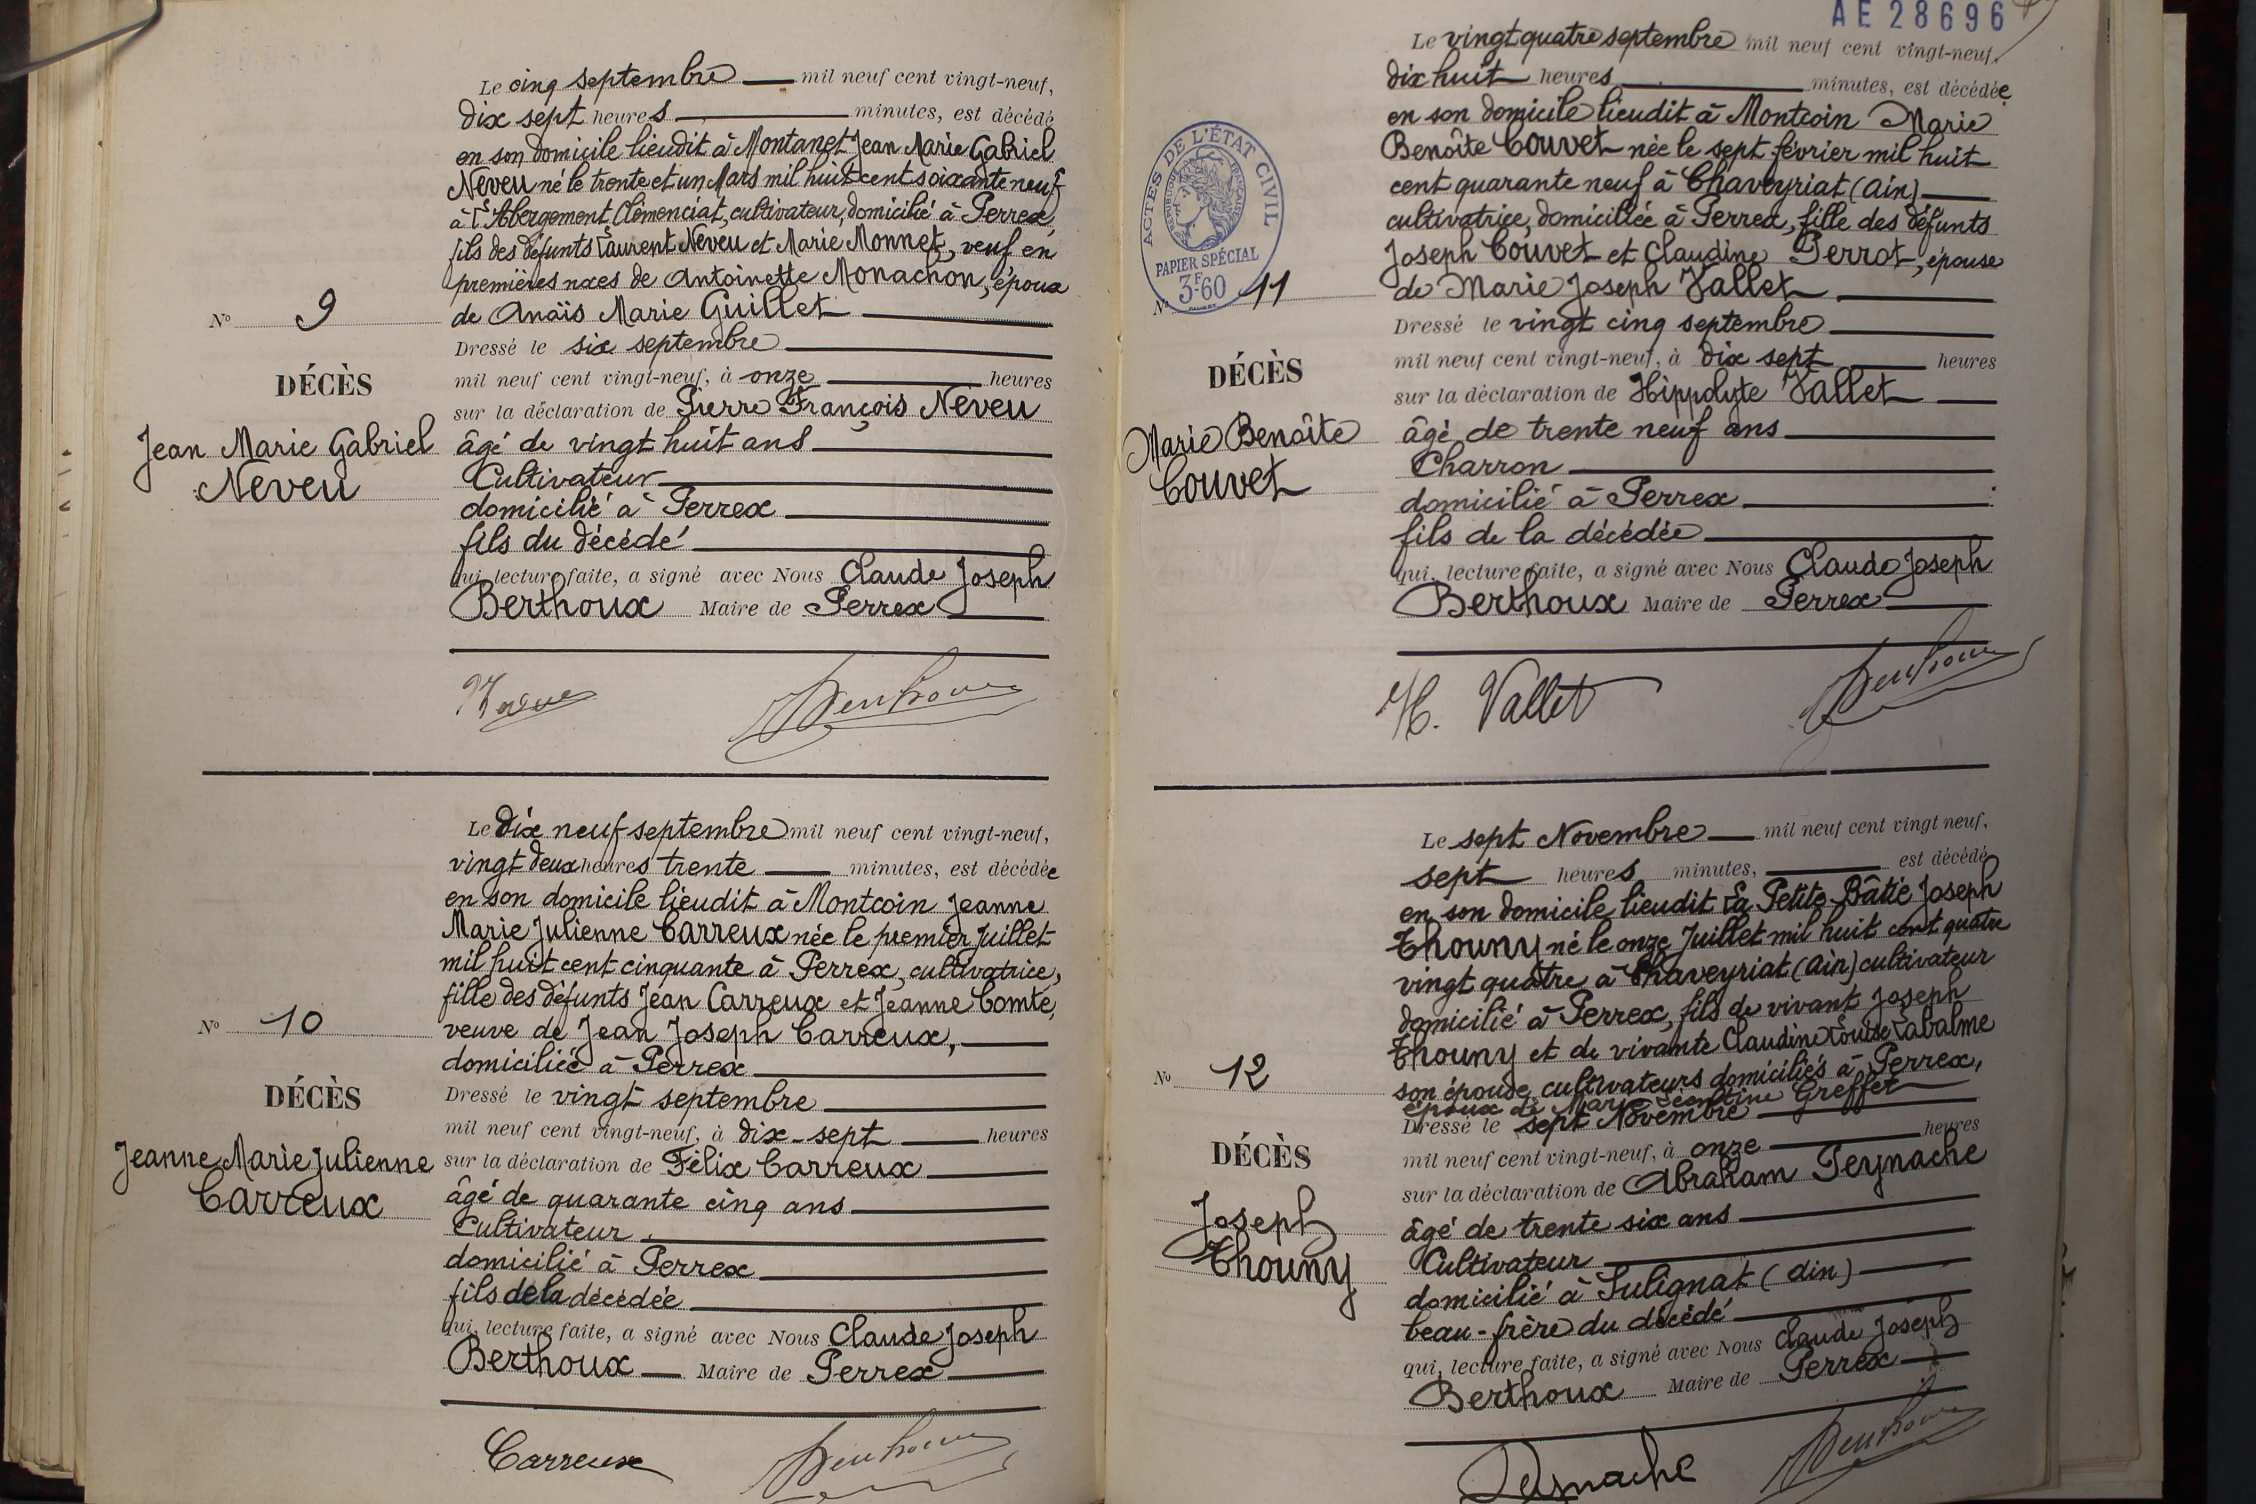 Le cinq septembre mil neuf cent vingt-neuf,
dix sept heures minutes, est décédé
en son domicile lieudit à Montanet Jean Marie Gabriel
Neveu né le trente et un Mars mil huit cent soixante neuf
à l'Abergement Clémenciat, cultivateur, domicilié à Perrex,
fils des défunts Laurent Neveu et Marie Monnet, veuf en
premières noces de Antoinette Monachon, époux
de Anaïs Marie Guillet
Dressé le six septembre
mil neuf cent vingt-neuf, à onze heures
sur la déclaration de Pierre François Neveu
âgé de vingt huit ans
Cultivateur
domicilié à Perrex
fils du décédé
qui, lecture faite, a signé avec Nous Claude Joseph
Berthoux Maire de Perrex
N° 9
DÉCÈS
Jean Marie Gabriel
Neveu
Le dix neuf septembre mil neuf cent vingt-neuf,
vingt deux heures trente minutes, est décédée
en son domicile lieudit à Montcoin Jeanne
Marie Julienne Carreux née le premier Juillet
mil huit cent cinquante à Perrex, cultivatrice,
fille des défunts Jean Carreux et Jeanne Comte,
veuve de Jean Joseph Carreux,
domiciliée à Perrex
Dressé le vingt septembre
mil neuf cent vingt-neuf, à dix-sept heures
sur la déclaration de Félix Carreux
âgé de quarante cinq ans
Cultivateur
domicilié à Perrex
fils de la décédée
qui, lecture faite, a signé avec Nous Claude Joseph
Berthoux Maire de Perrex
Carreux
N° 10
DÉCÈS
Jeanne Marie Julienne
Carreux
AE 28696
Le vingt quatre septembre mil neuf cent vingt-neuf,
dix huit heures minutes, est décédée
en son domicile lieudit à Montcoin Marie
Benoîte Couvet née le sept février mil huit
cent quarante neuf à Chaveyriat (Ain)
cultivatrice, domiciliée à Perrex, fille des défunts
Joseph Couvet et Claudine Perrot, épouse
de Marie Joseph Vallet
Dressé le vingt cinq septembre
mil neuf cent vingt-neuf, à dix sept heures
sur la déclaration de Hippolyte Vallet
âgé de trente neuf ans
Charron
domicilié à Perrex
fils de la décédée
qui, lecture faite, a signé avec Nous Claude Joseph
Berthoux Maire de Perrex
H. Vallet
ACTES DE L'ÉTAT CIVIL
RÉPUBLIQUE FRANÇAISE
PAPIER SPÉCIAL
3F60
N° 11
DÉCÈS
Marie Benoîte
Couvet
Le sept Novembre mil neuf cent vingt neuf,
sept heures minutes, est décédé
en son domicile lieudit La Petite Bâtie Joseph
Thouny né le onze Juillet mil huit cent quatre
vingt quatre à Chaveyriat (Ain) cultivateur
domicilié à Perrex, fils de vivant Joseph
Thouny et de vivante Claudine Louise Labalme
son épouse, cultivateurs domiciliés à Perrex,
époux de Marie Léontine Greffet
Dressé le sept Novembre
mil neuf cent vingt-neuf, à onze heures
sur la déclaration de Abraham Peynache
âgé de trente six ans
Cultivateur
domicilié à Sulignat (Ain)
beau-frère du décédé
qui, lecture faite, a signé avec Nous Claude Joseph
Berthoux Maire de Perrex
N° 12
DÉCÈS
Joseph
Thouny